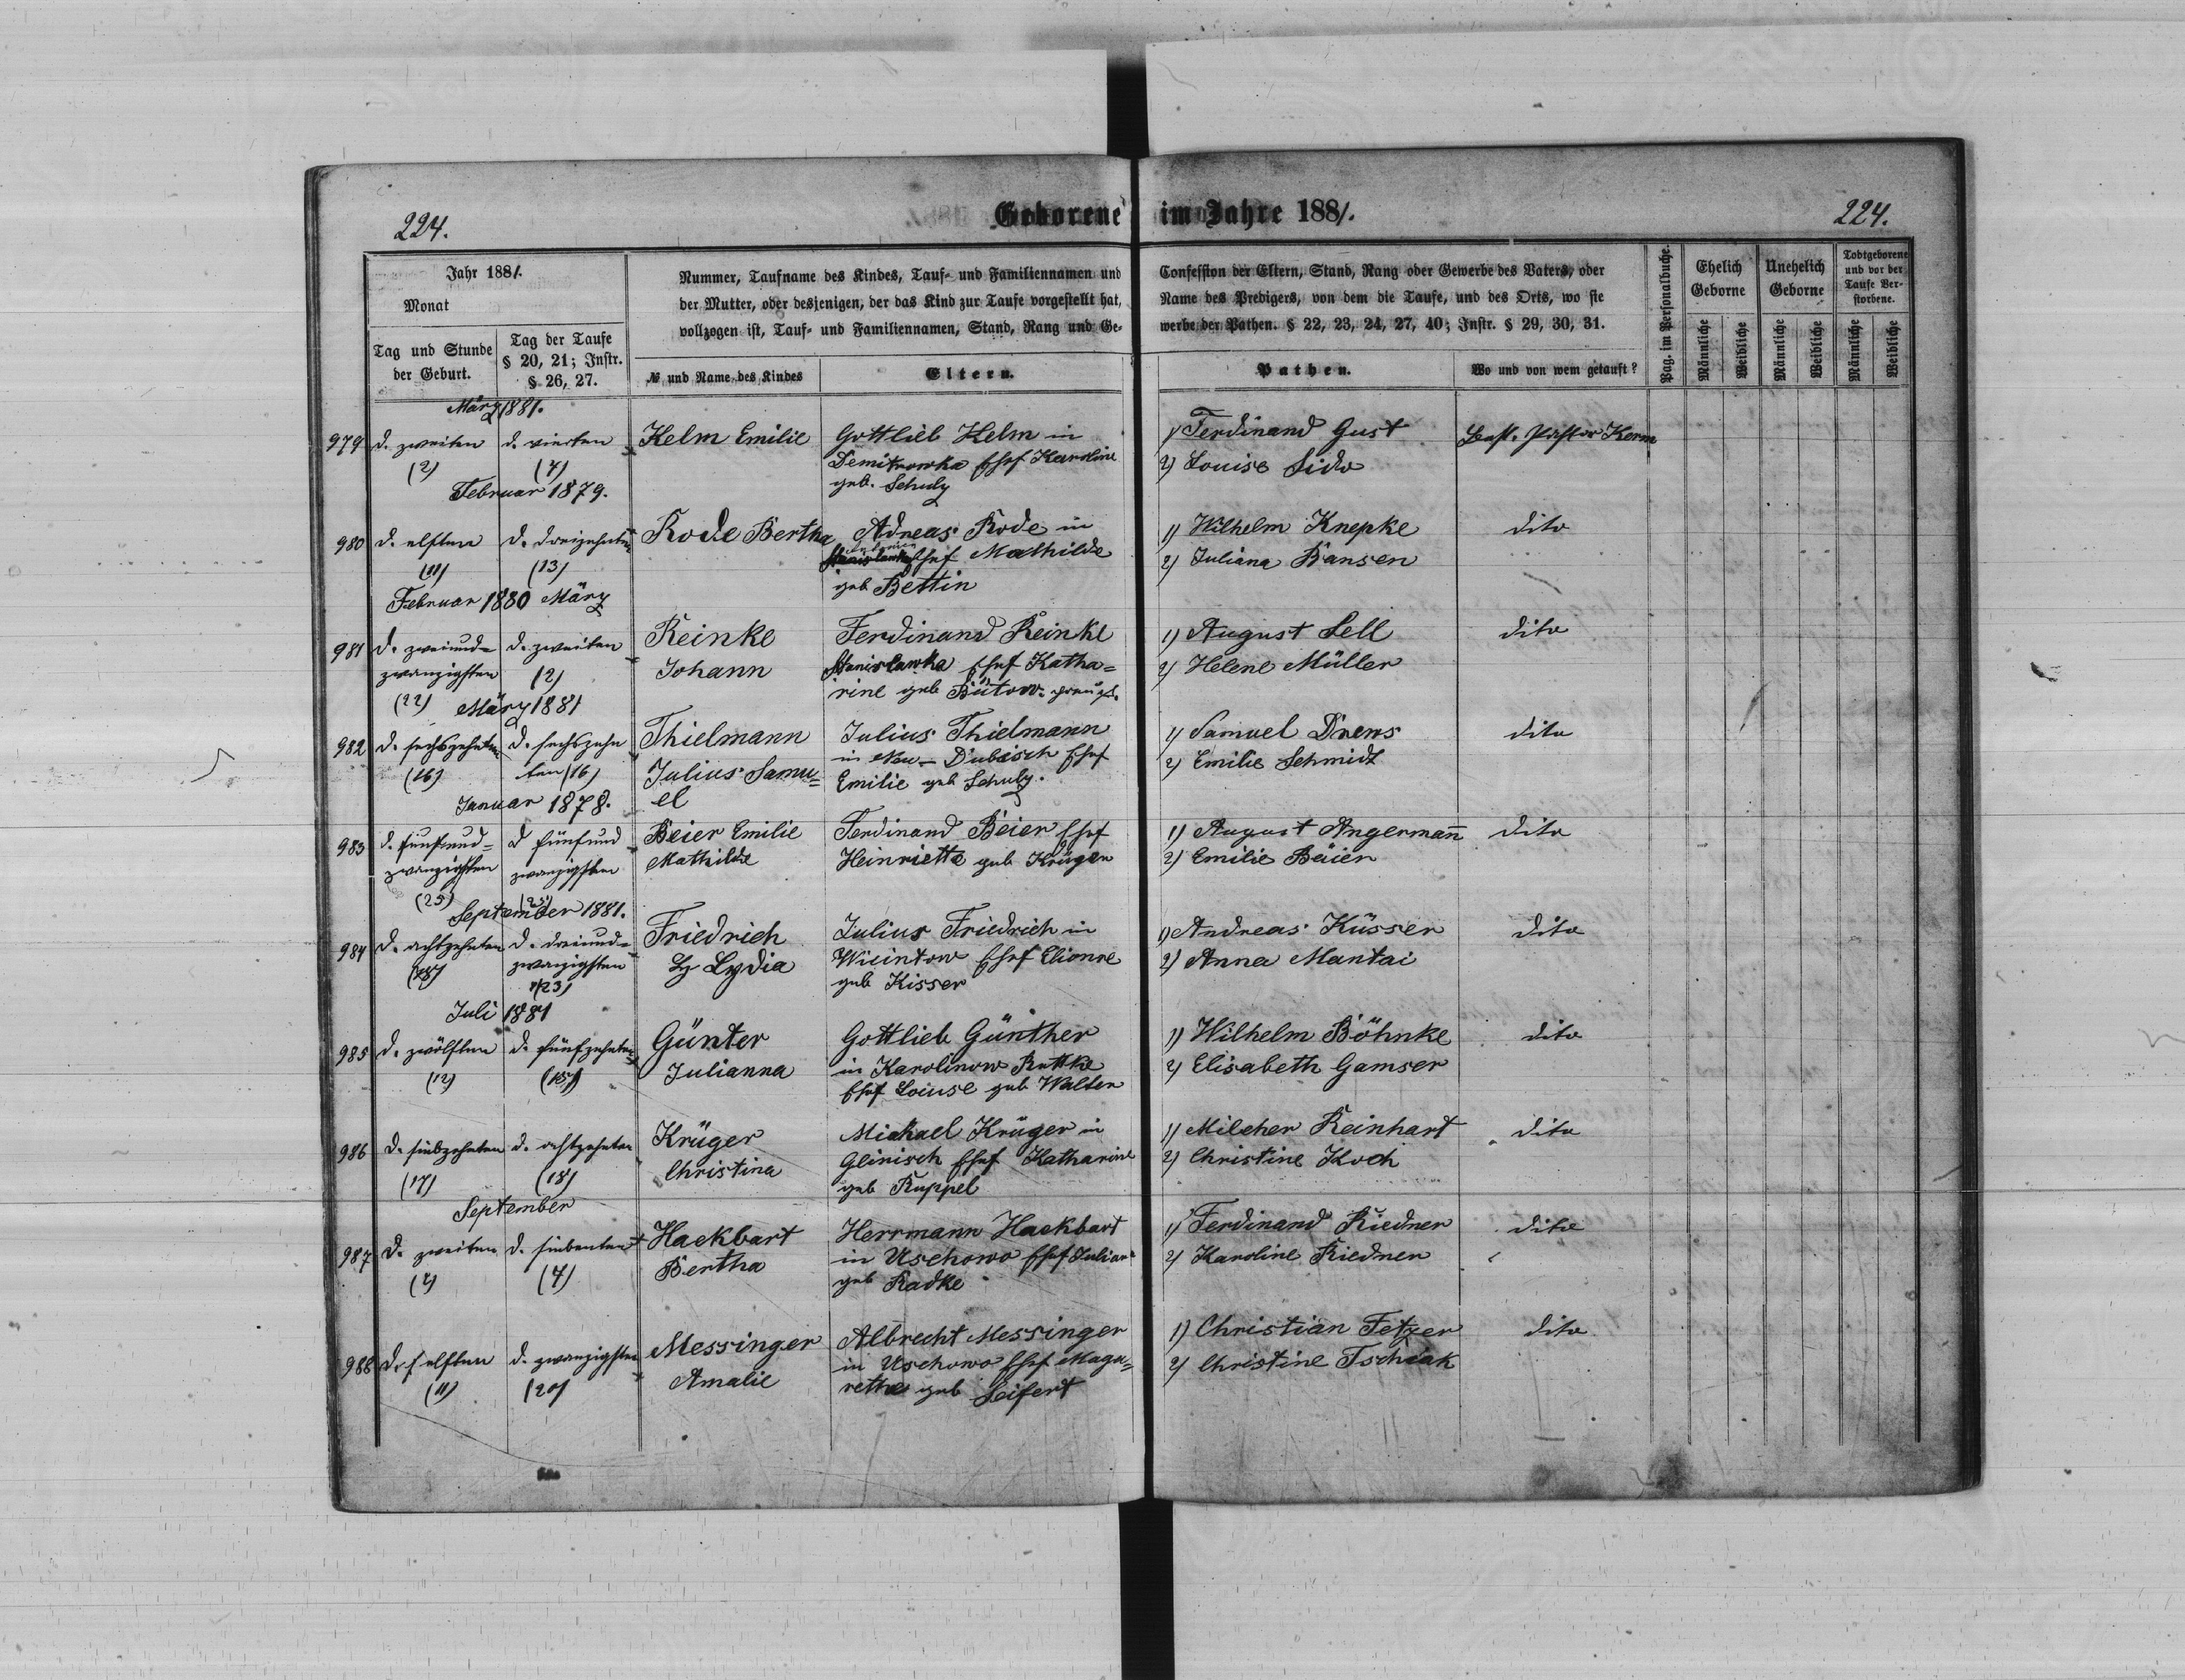 224.
Geborene im Jahre 1881.
224.
Jahr 1881.
Monat
Tag und Stunde
der Geburt.
Tag der Taufe
§ 20, 21; Instr.
§ 26, 27.
Nummer, Taufname des Kindes, Tauf- und Familiennamen und
der Mutter, oder desjenigen, der das Kind zur Taufe vorgestellt hat,
vollzogen ist, Tauf- und Familiennamen, Stand, Rang und Ge-
№ und Name des Kindes
Eltern.
Confession der Eltern, Stand, Rang oder Gewerbe des Vaters, oder
Name des Predigers, von dem die Taufe, und des Orts, wo sie
werbe der Pathen. § 22, 23, 24, 27, 40; Instr. § 29, 30, 31.
Pathen.
Wo und von wem getauft?
Pag. im Personalbuche.
Ehelich
Geborne
Unehelich
Geborne
Todtgeborene
und vor der
Taufe Ver-
storbene.
Männliche
Weibliche
Männliche
Weibliche
Männliche
Weibliche
März 1881.
979 d. zweiten d. vierten Kelm Emilie Gottlieb Kelm in 1) Ferdinand Gust Past. Pastor Kerm
(2) (4) Demitrowka Ehef Karoline 2) Louise Sido
geb. Schulz
Februar 1879.
980 d. elften d. dreizehnten Rode Bertha Adreas Rode in 1) Wilhelm Knepke dito
(11) (13) Ehef Mathilde 2) Juliana Bansen
geb Bettin
Februar 1880 März
981 d. zweiund= d. zweiten Reinke Ferdinand Reinke 1) August Sell dito
zwanzigsten (2) Johann Stanislawka Ehef Katha= 2) Helene Müller
(22) rine geb Bütow.
März 1881
982 d. sechszehnten d. sechszehn Thielmann Julius Thielmann 1) Samuel Drews dito
(16) ten (16) Julius Samu= in Neu-Dubisch Ehef 2) Emilie Schmidt
el Emilie geb Schulz.
Januar 1878.
983 d. fünfund= d fünfund Beier Emilie Ferdinand Beier Ehef 1) August Angermañ dito
zwanzigsten zwanzigsten Mathilde Heinriette geb Krüger 2) Emilie Beier
(25) (25)
September 1881.
984 d. achtzehnten d. dreiund= Friedrich Julius Friedrich in 1) Andreas Küsser dito
(18) zwanzigsten Lydia Wicintow Ehef Elionre 2) Anna Mantai
(23) geb Kisser
Juli 1881
985 d. zwölften d. fünfzehnten Günter Gottlieb Günther 1) Wilhelm Böhnke dito
(12) (15) Julianna in Karolinow Ruttke 2) Elisabeth Gamser
Ehef Loiuse geb Walter
986 d. siebzehnten d. achtzehnten Krüger Michael Krüger in 1) Milcher Reinhart dito
(17) (18) Christina Glinisch Ehef Katharine 2) Christine Koch
geb Ruppel
September
987 d. zweiten d. siebenten Hackbart Herrmann Hackbart 1) Ferdinand Riedner dito
(2) (7) Bertha in Uschowo Ehef Julian 2) Karoline Riedner
geb Radke
988 d. elften d. zwanzigsten Messinger Albrecht Messinger 1) Christian Fetzer dito
(11) (20) Amalie in Uschowo Ehef Maga= 2) Christine Tschiak
rethe geb Seifert